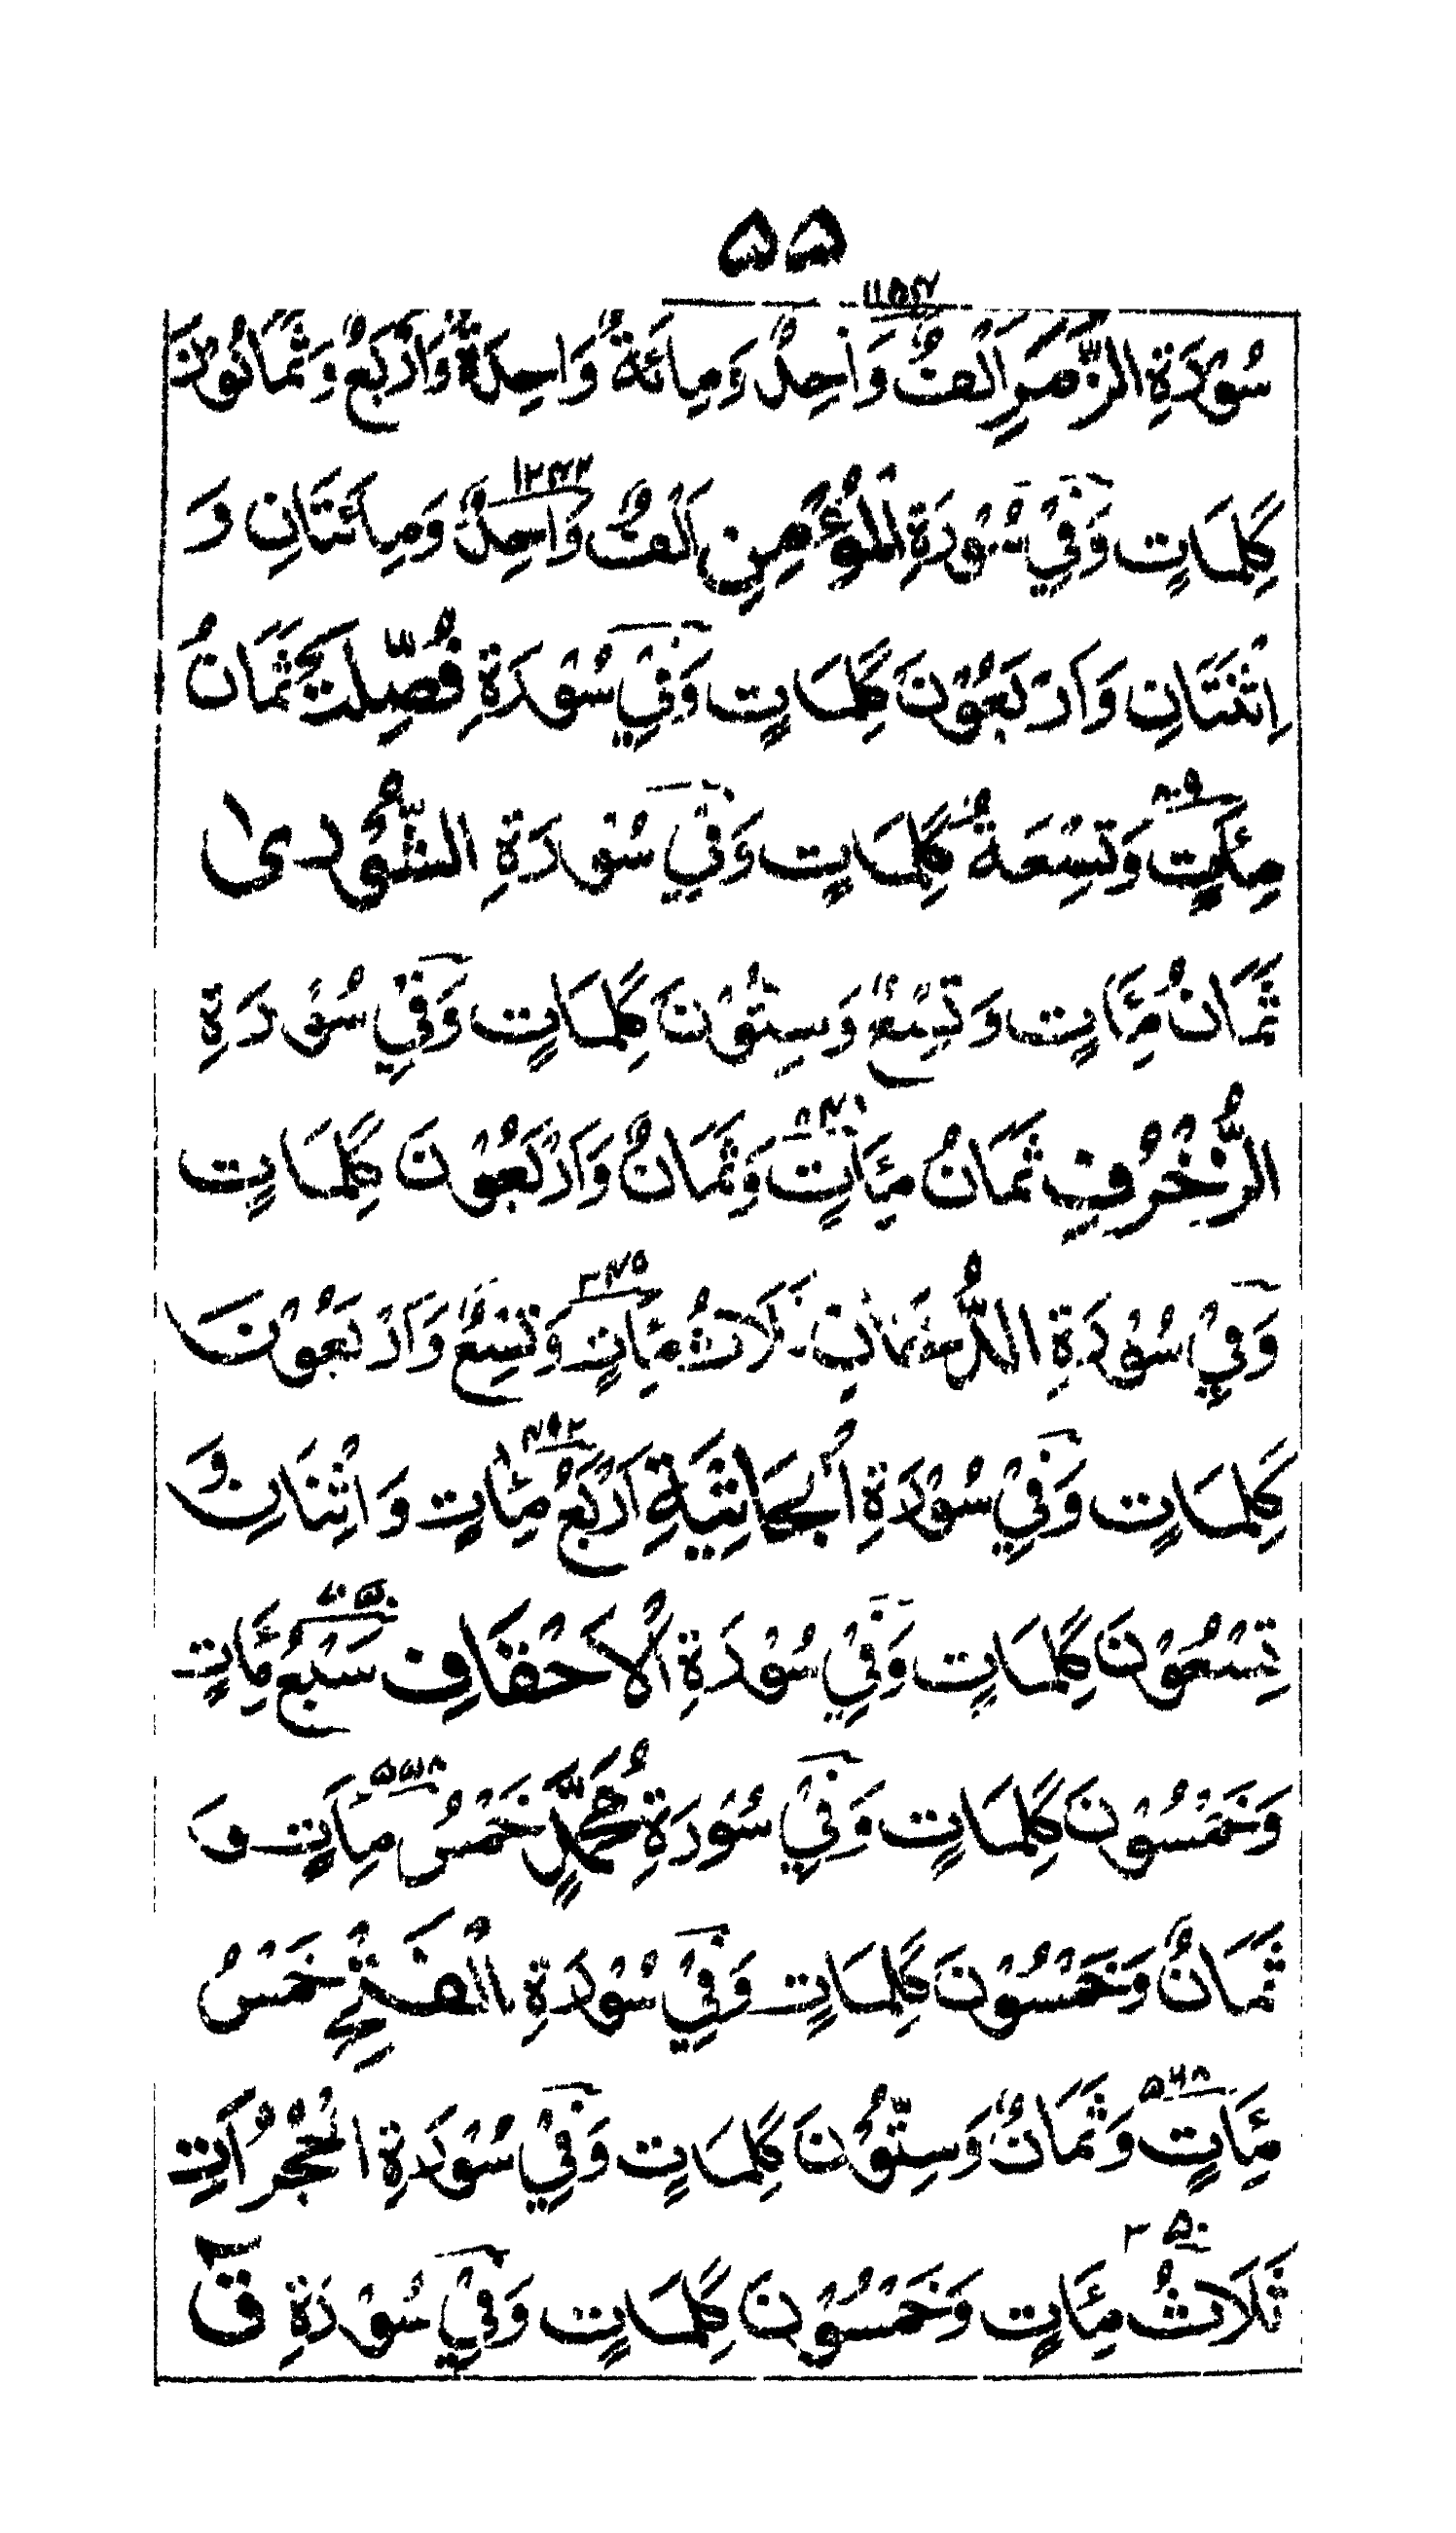 ۵۵
۱۱۸۴
سُوْرَةِ الزُّمَرِ اَلْفٌ وَاحِدٌ وَمِائَةٌ وَاحِدَةٌ وَاَرْبَعٌ وَثَمَانُوْنَ
۱۲۴۲
كَلِمَاتٍ وَفِيْ سُوْرَةِ الْمُؤْمِنِ اَلْفٌ وَاحِدٌ وَمِائَتَانِ وَ
اِثْنَتَانِ وَاَرْبَعُوْنَ كَلِمَاتٍ وَفِيْ سُوْرَةِ فُصِّلَتْ ثَمَانُ
۸۰۹
مِئَاتٍ وَتِسْعَةُ كَلِمَاتٍ وَفِيْ سُوْرَةِ الشُّوْرٰى
ثَمَانُ مِئَاتٍ وَتِسْعٌ وَسِتُّوْنَ كَلِمَاتٍ وَفِيْ سُوْرَةِ
الزُّخْرُفِ ثَمَانُ مِئَاتٍ وَثَمَانٌ وَاَرْبَعُوْنَ كَلِمَاتٍ
وَفِيْ سُوْرَةِ الدُّخَانِ ثَلَاثُ مِئَاتٍ وَتِسْعٌ وَاَرْبَعُوْنَ
۴۹۲
كَلِمَاتٍ وَفِيْ سُوْرَةِ الْجَاثِيَةِ اَرْبَعُ مِئَاتٍ وَاثْنَانِ وَ
۷۵۰
تِسْعُوْنَ كَلِمَاتٍ وَفِيْ سُوْرَةِ الْاَحْقَافِ سَبْعُ مِئَاتٍ
۵۵۸
وَخَمْسُوْنَ كَلِمَاتٍ وَفِيْ سُوْرَةِ مُحَمَّدٍ خَمْسُ مِاٰتٍ وَ
ثَمَانٌ وَخَمْسُوْنَ كَلِمَاتٍ وَفِيْ سُوْرَةِ الْفَتْحِ خَمْسُ
۵۶۸
مِئَاتٍ وَثَمَانٌ وَسِتُّوْنَ كَلِمَاتٍ وَفِيْ سُوْرَةِ الْحُجُرَاتِ
۳۵۰
ثَلَاثُ مِئَاتٍ وَخَمْسُوْنَ كَلِمَاتٍ وَفِيْ سُوْرَةِ قٓ